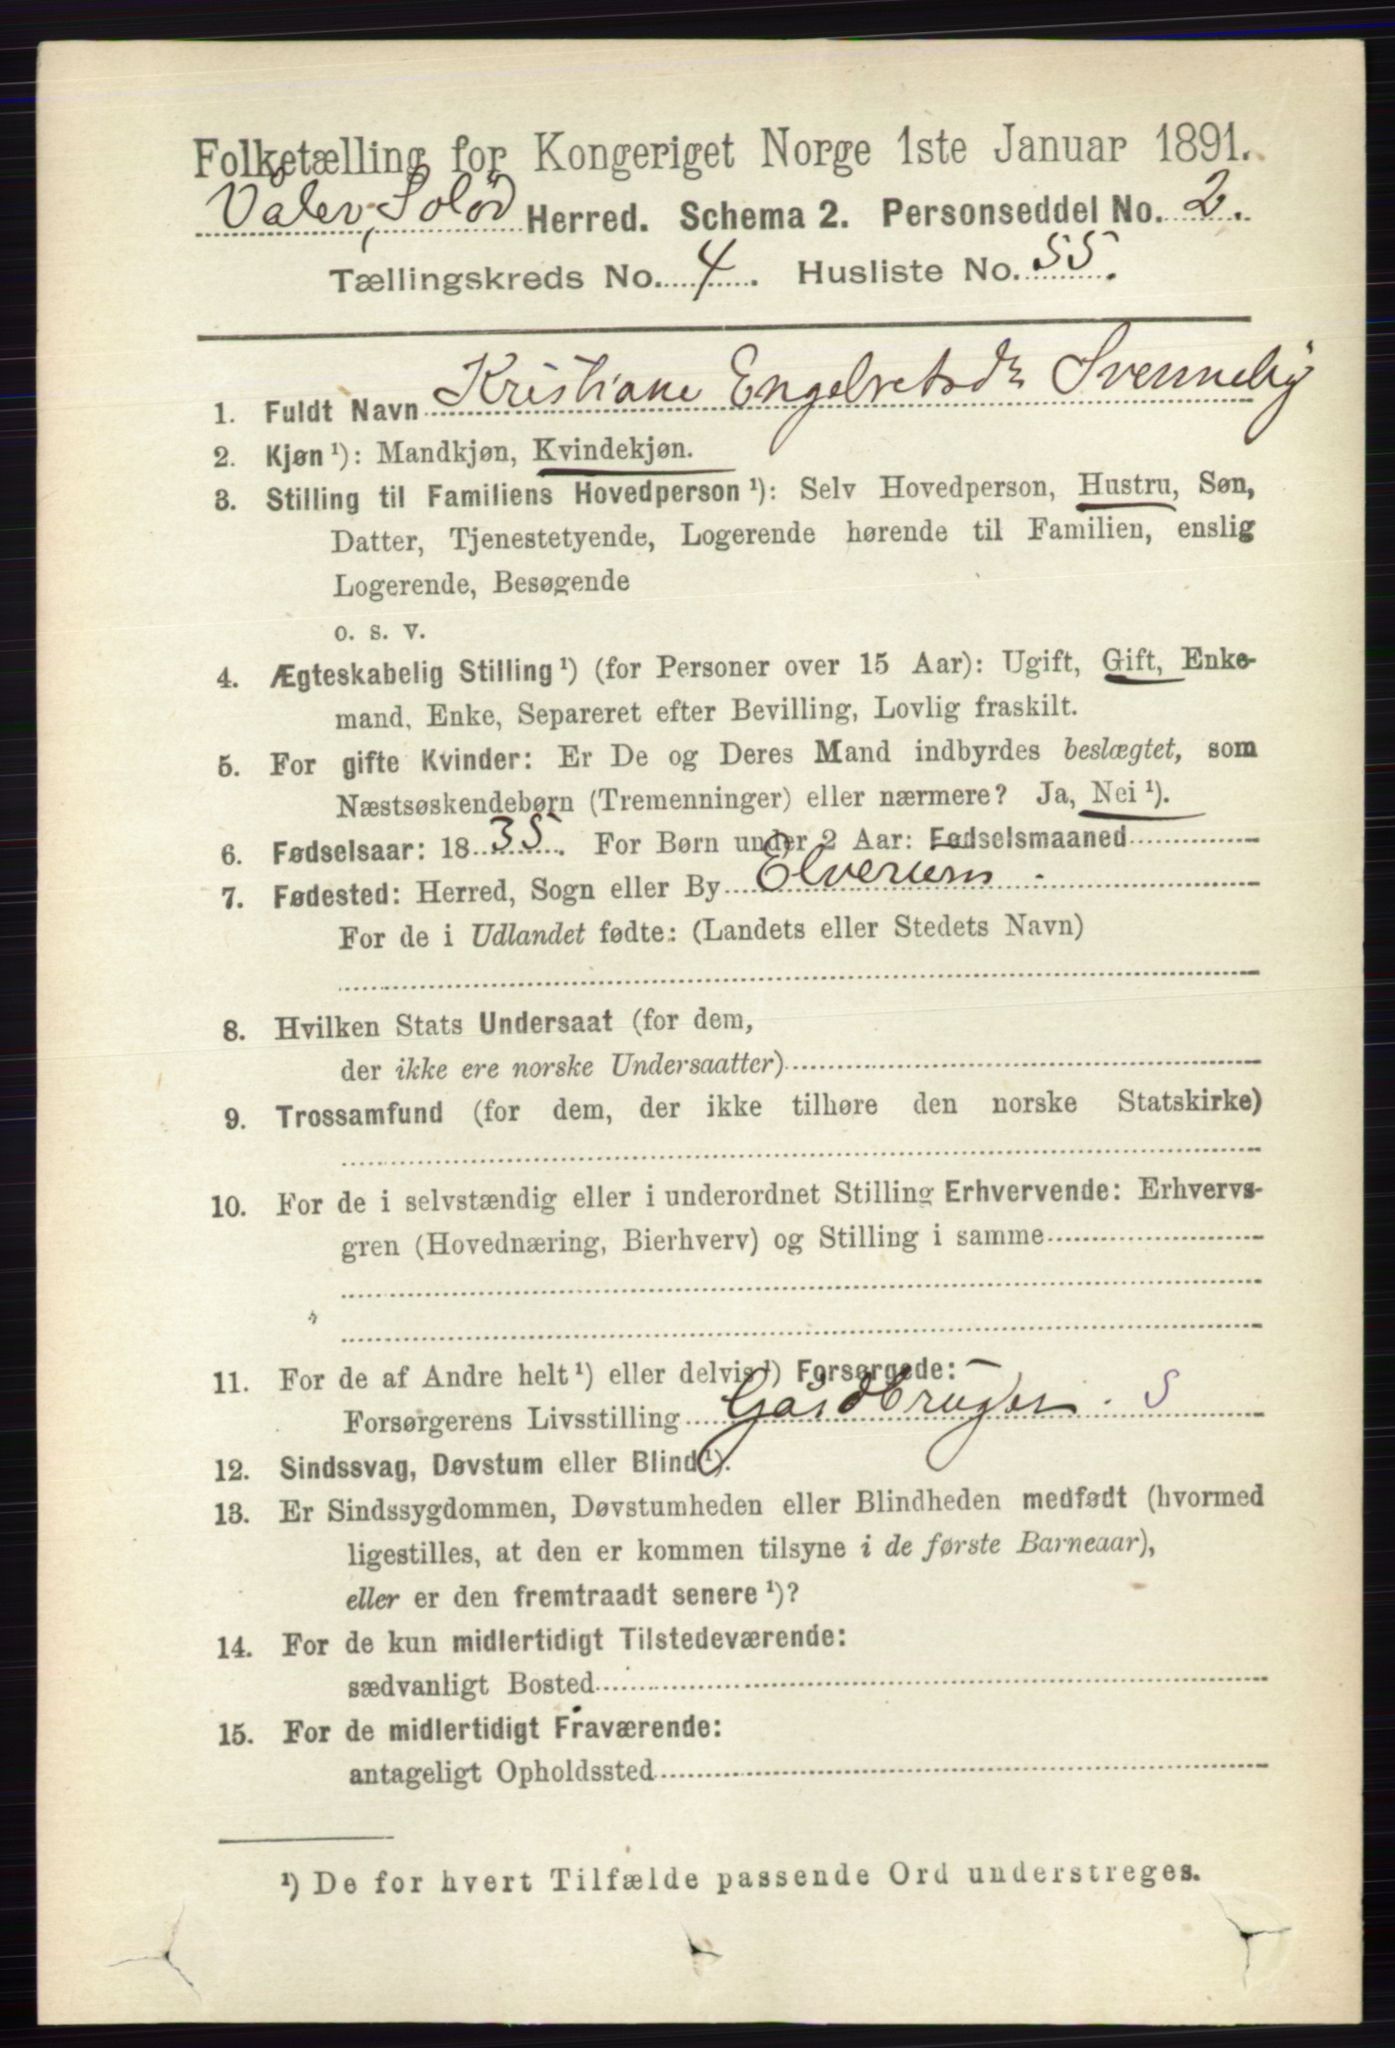 Folketælling for Kongeriget Norge 1ste Januar 1891.
Våler, Solør Herred. Schema 2. Personseddel No. 2.
Tællingskreds No. 4. Husliste No. 55.
1. Fuldt Navn Kristiane Engelretsdr Svenneby
2. Kjøn ¹): Mandkjøn, Kvindekjøn.
3. Stilling til Familiens Hovedperson ¹): Selv Hovedperson, Hustru, Søn,
Datter, Tjenestetyende, Logerende hørende til Familien, enslig
Logerende, Besøgende
o. s. v.
4. Ægteskabelig Stilling ¹) (for Personer over 15 Aar): Ugift, Gift, Enke-
mand, Enke, Separeret efter Bevilling, Lovlig fraskilt.
5. For gifte Kvinder: Er De og Deres Mand indbyrdes beslægtet, som
Næstsøskendebørn (Tremenninger) eller nærmere? Ja, Nei ¹).
6. Fødselsaar: 1835. For Børn under 2 Aar: Fødselsmaaned
7. Fødested: Herred, Sogn eller By Elverum.
For de i Udlandet fødte: (Landets eller Stedets Navn)
8. Hvilken Stats Undersaat (for dem,
der ikke ere norske Undersaatter)
9. Trossamfund (for dem, der ikke tilhøre den norske Statskirke)
10. For de i selvstændig eller i underordnet Stilling Erhvervende: Erhvervs-
gren (Hovednæring, Bierhverv) og Stilling i samme
11. For de af Andre helt ¹) eller delvis ¹) Forsørgede:
Forsørgerens Livsstilling Gårdbruger. S
12. Sindssvag, Døvstum eller Blind ¹).
13. Er Sindssygdommen, Døvstumheden eller Blindheden medfødt (hvormed
ligestilles, at den er kommen tilsyne i de første Barneaar),
eller er den fremtraadt senere ¹)?
14. For de kun midlertidigt Tilstedeværende:
sædvanligt Bosted
15. For de midlertidigt Fraværende:
antageligt Opholdssted
¹) De for hvert Tilfælde passende Ord understreges.